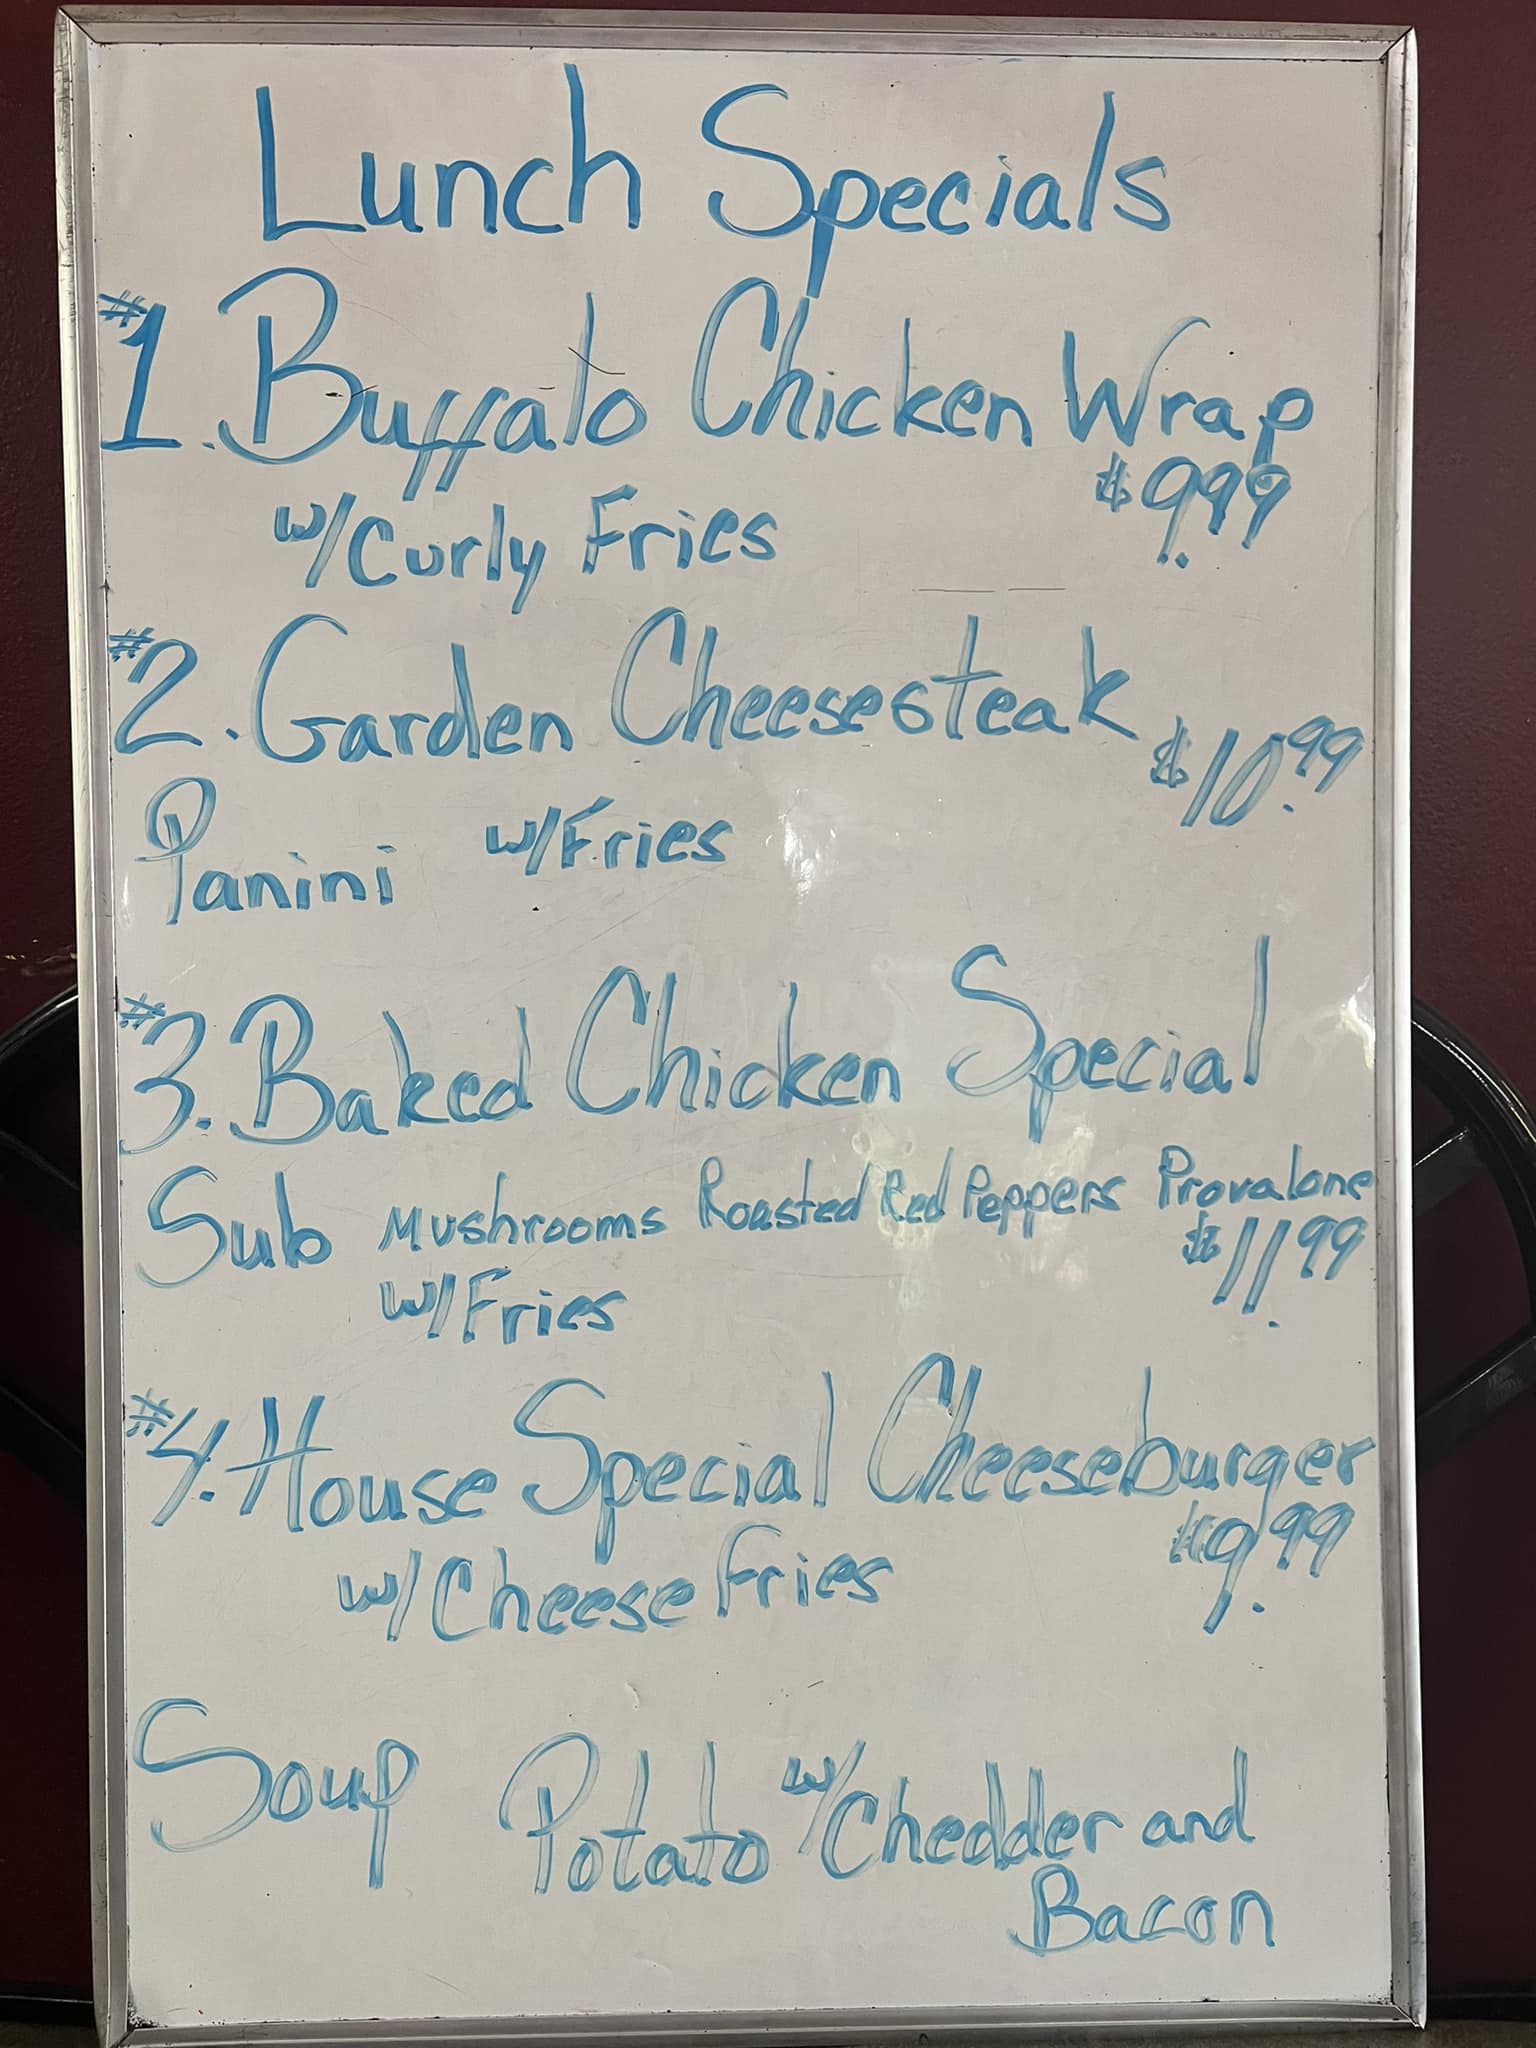 Lunch Specials
#1. Buffalo Chicken Wrap
w/Curly Fries $9.99
#2. Garden Cheesesteak
$10.99
Panini w/Fries
#3. Baked Chicken Special
Sub Mushrooms Roasted Red Peppers Provalone
w/Fries $11.99
#4. House Special Cheeseburger
w/Cheese Fries $9.99
Soup Potato w/Chedder and
Bacon